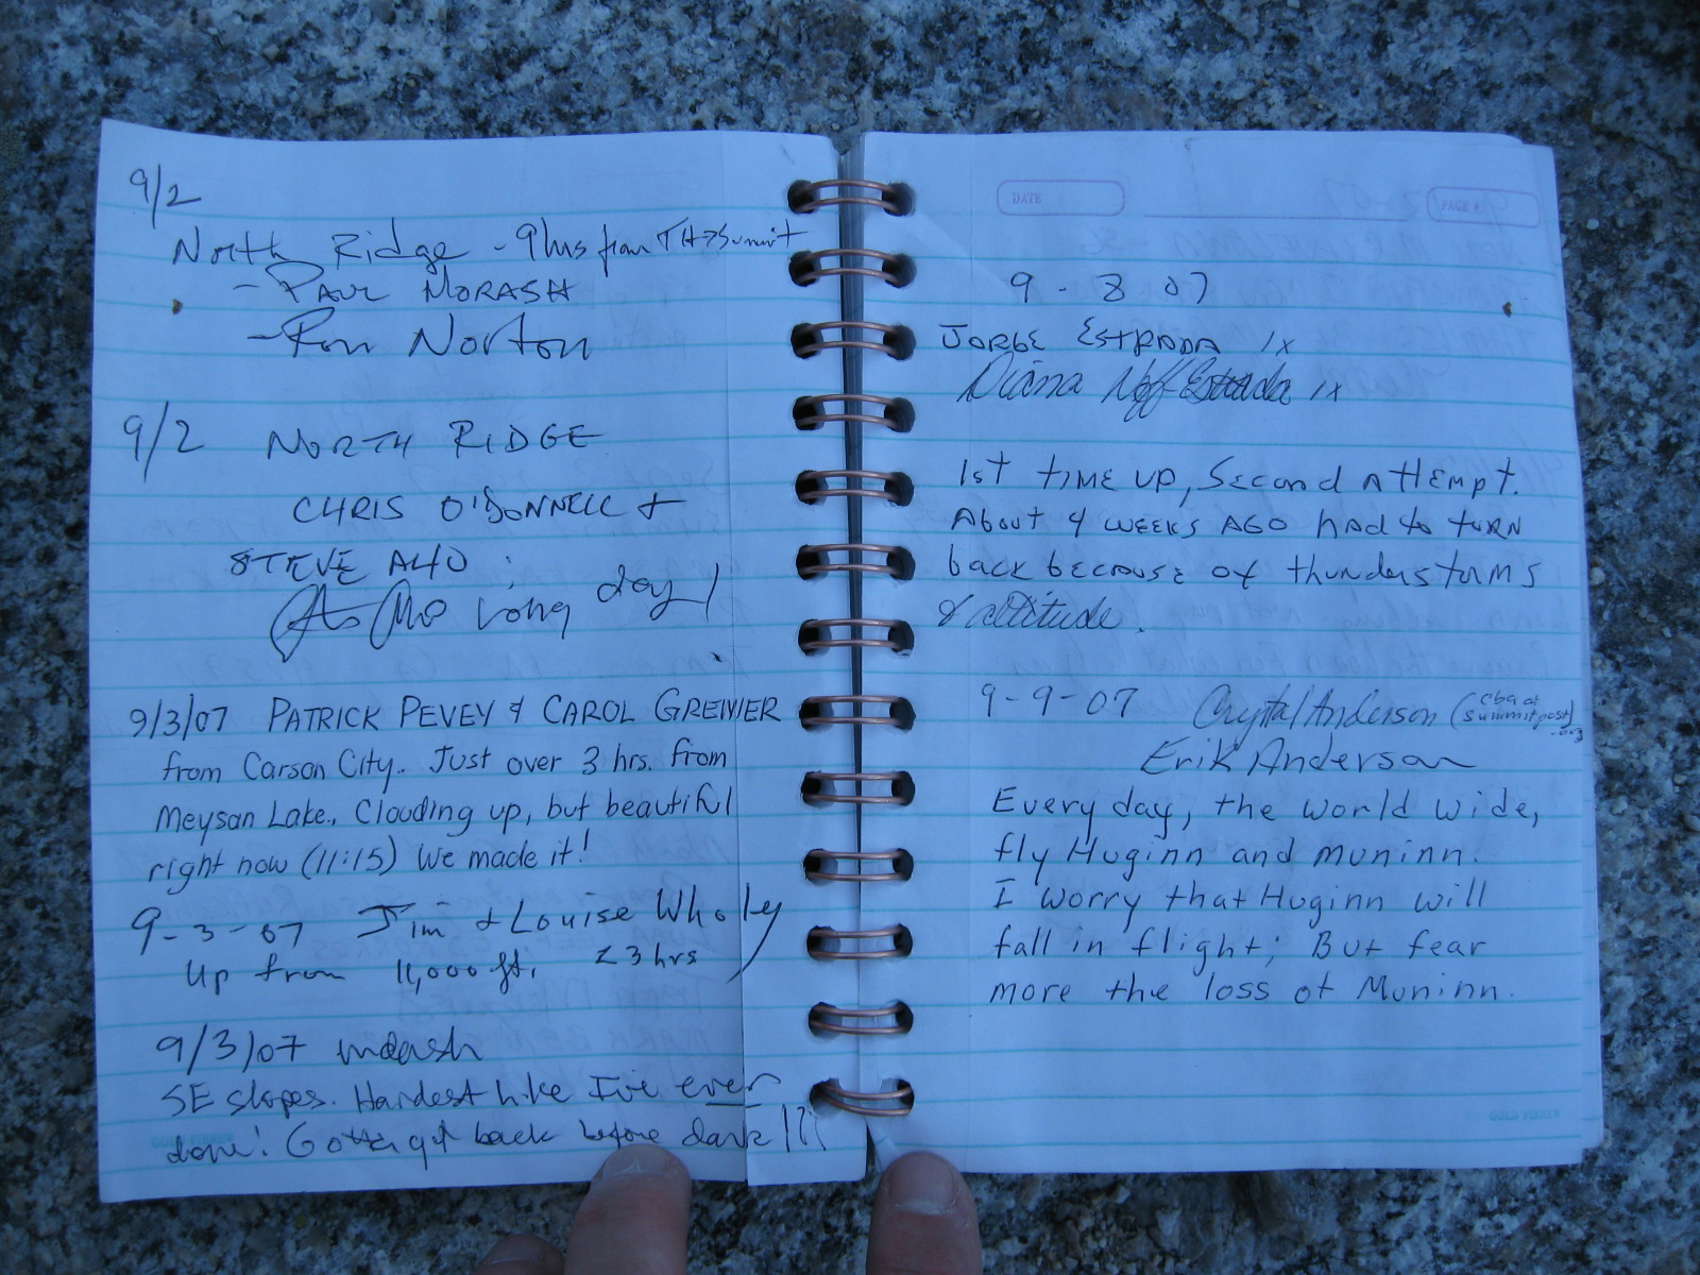 9/2
North Ridge - 9 hrs from TH→Summit
- PAUL MORASH
- Ron Norton
9/2 NORTH RIDGE
CHRIS O'DONNELL +
STEVE ALHO
long day!
9/3/07 PATRICK PEVEY & CAROL GREINER
from Carson City. Just over 3 hrs. from
Meysan Lake. Clouding up, but beautiful
right now (11:15) We made it!
9-3-07 Jim & Louise Wholey
Up from 11,000 ft. < 3 hrs
9/3/07
SE slopes. Hardest hike I've ever
done! Gotta get back before dark!!!
GOLD FIBRE
DATE
PAGE #
9-8 07
JORGE ESTRADA 1x
Diana Neff-Estrada 1x
1st TIME UP, Second ATTEMPT.
About 4 WEEKS AGO had to turn
back because of thunderstorms
& altitude.
9-9-07 Crystal Anderson (cba at
summitpost)
.org
Erik Anderson
Every day, the world wide,
fly Huginn and muninn.
I worry that Huginn will
fall in flight; But fear
more the loss of Muninn.
GOLD FIBRE